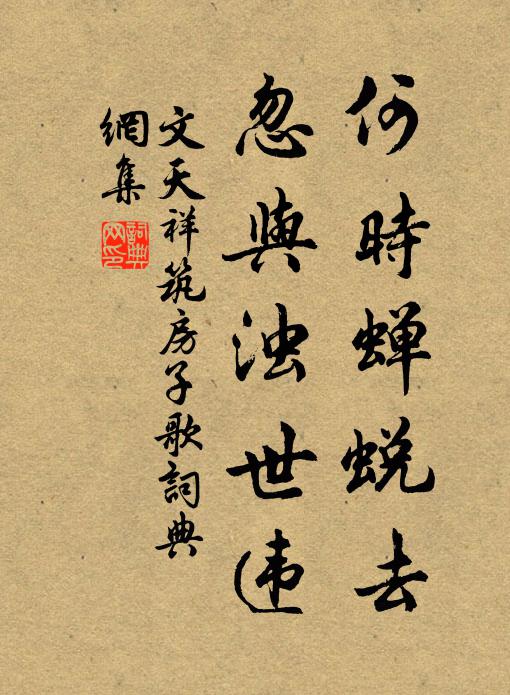 何時蝉蜕去
忽與浊世违
文天祥筑房子歌詞典
網集
詞典网印